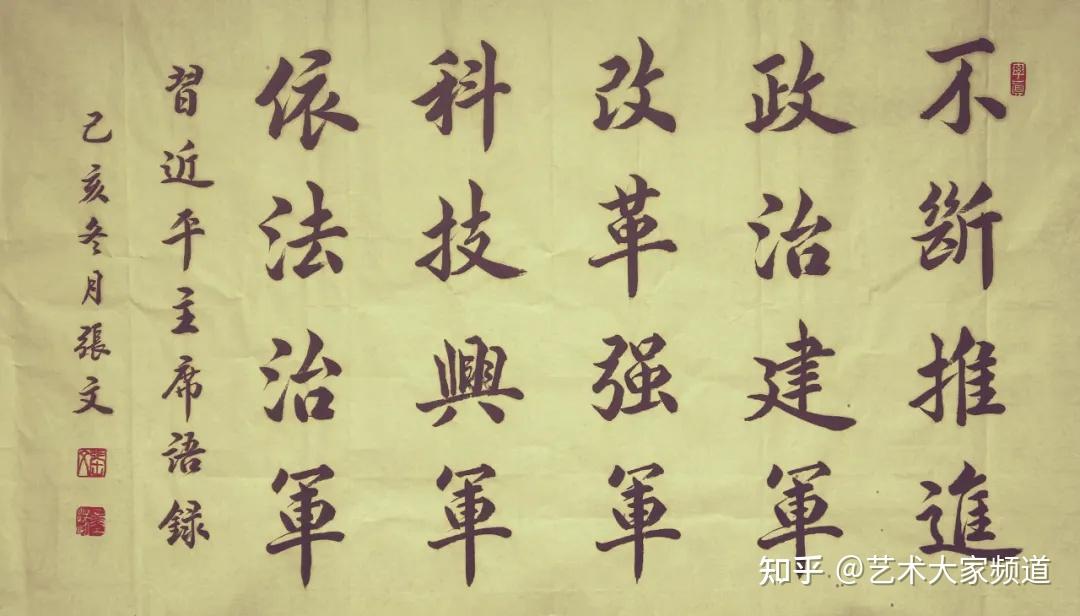 不斷推進
政治建軍
改革强軍
科技興軍
依法治軍
習近平主席語録
己亥冬月張文
知乎 @艺术大家频道